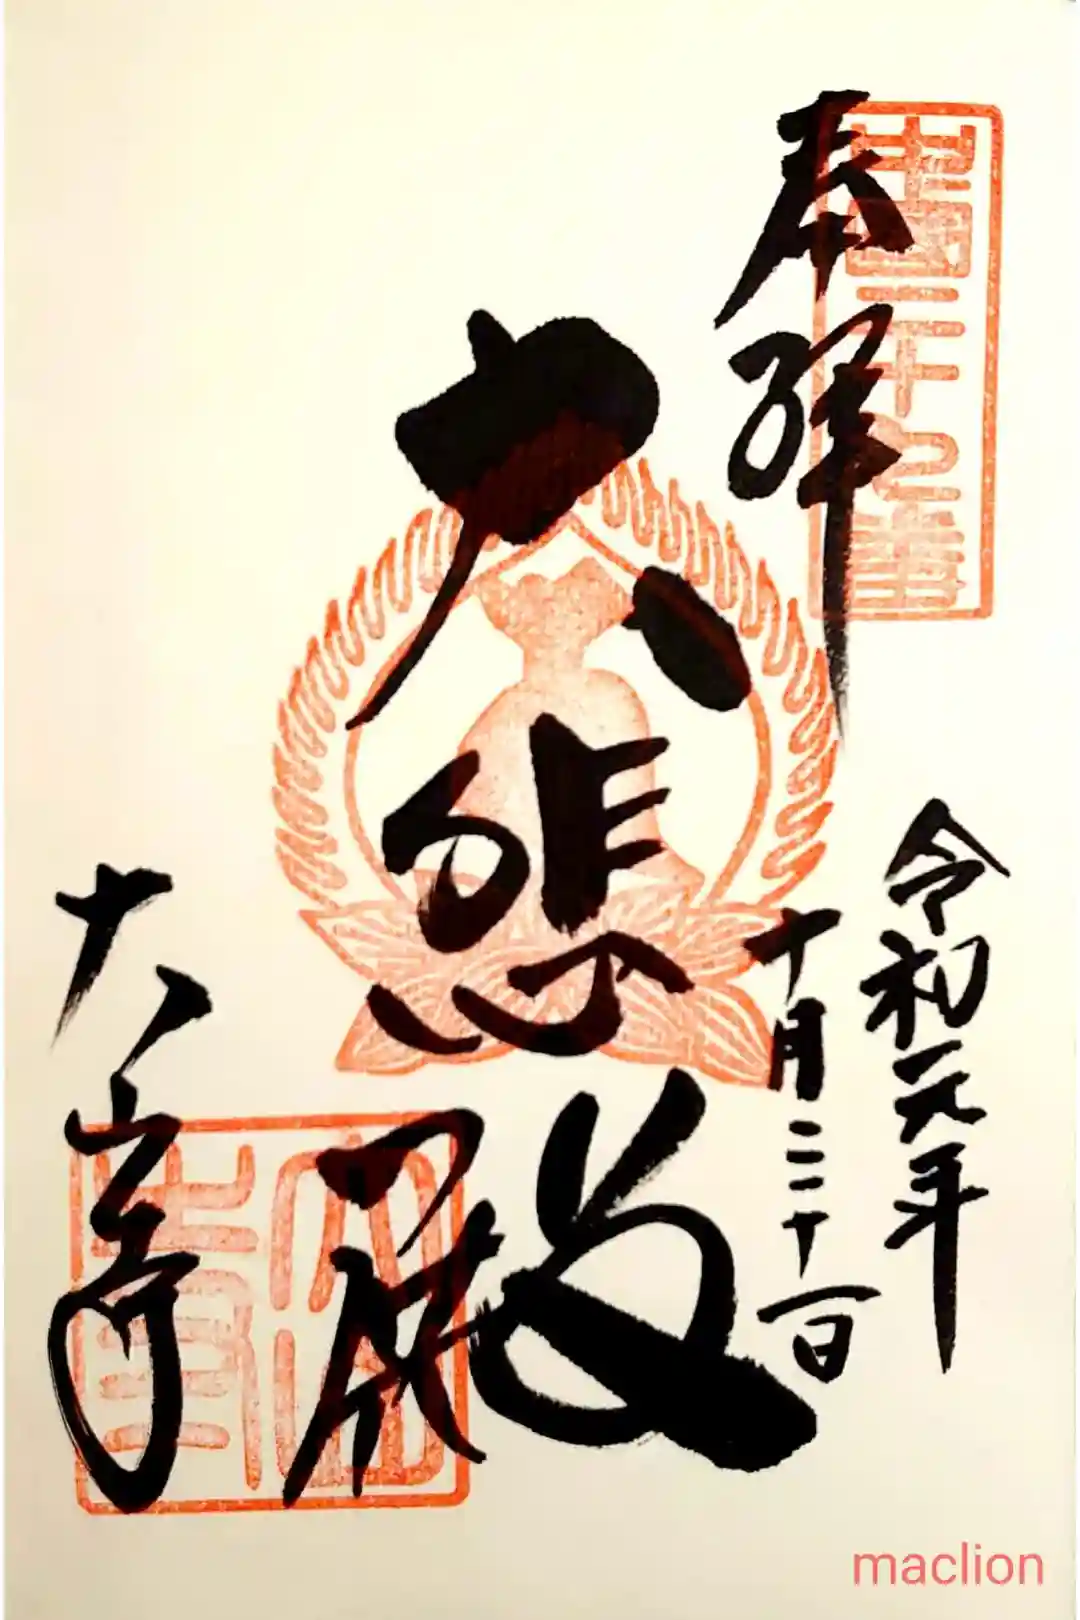 奉拝
令和元年
十月二十一日
大悲殿
大山寺
maclion